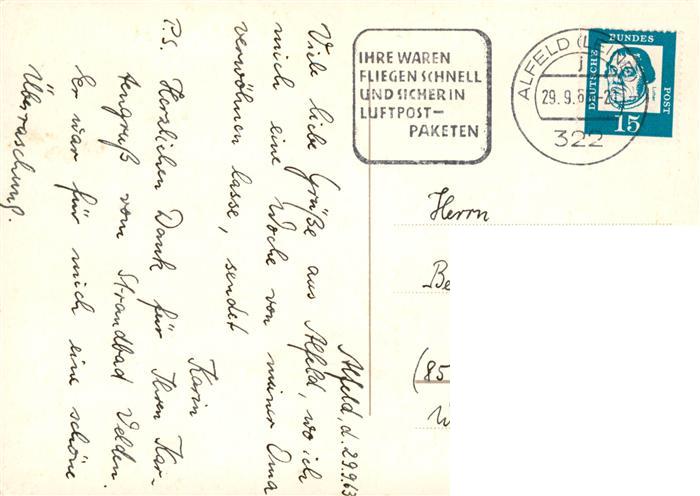 Alfeld, d. 29.9.63
Viele liebe Grüße aus Alfeld, wo ich
mich eine Woche von meiner Oma
verwöhnen lasse, sendet
Karin
P.S. Herzlichen Dank für Ihren Kar-
tengruß vom Strandbad Velden.
Er war für mich eine schöne
Überraschung.
IHRE WAREN
FLIEGEN SCHNELL
UND SICHER IN
LUFTPOST-
PAKETEN
ALFELD (LEINE)
j
29.9.6
322
DEUTSCHE BUNDESPOST
15
Herrn
Be
(85